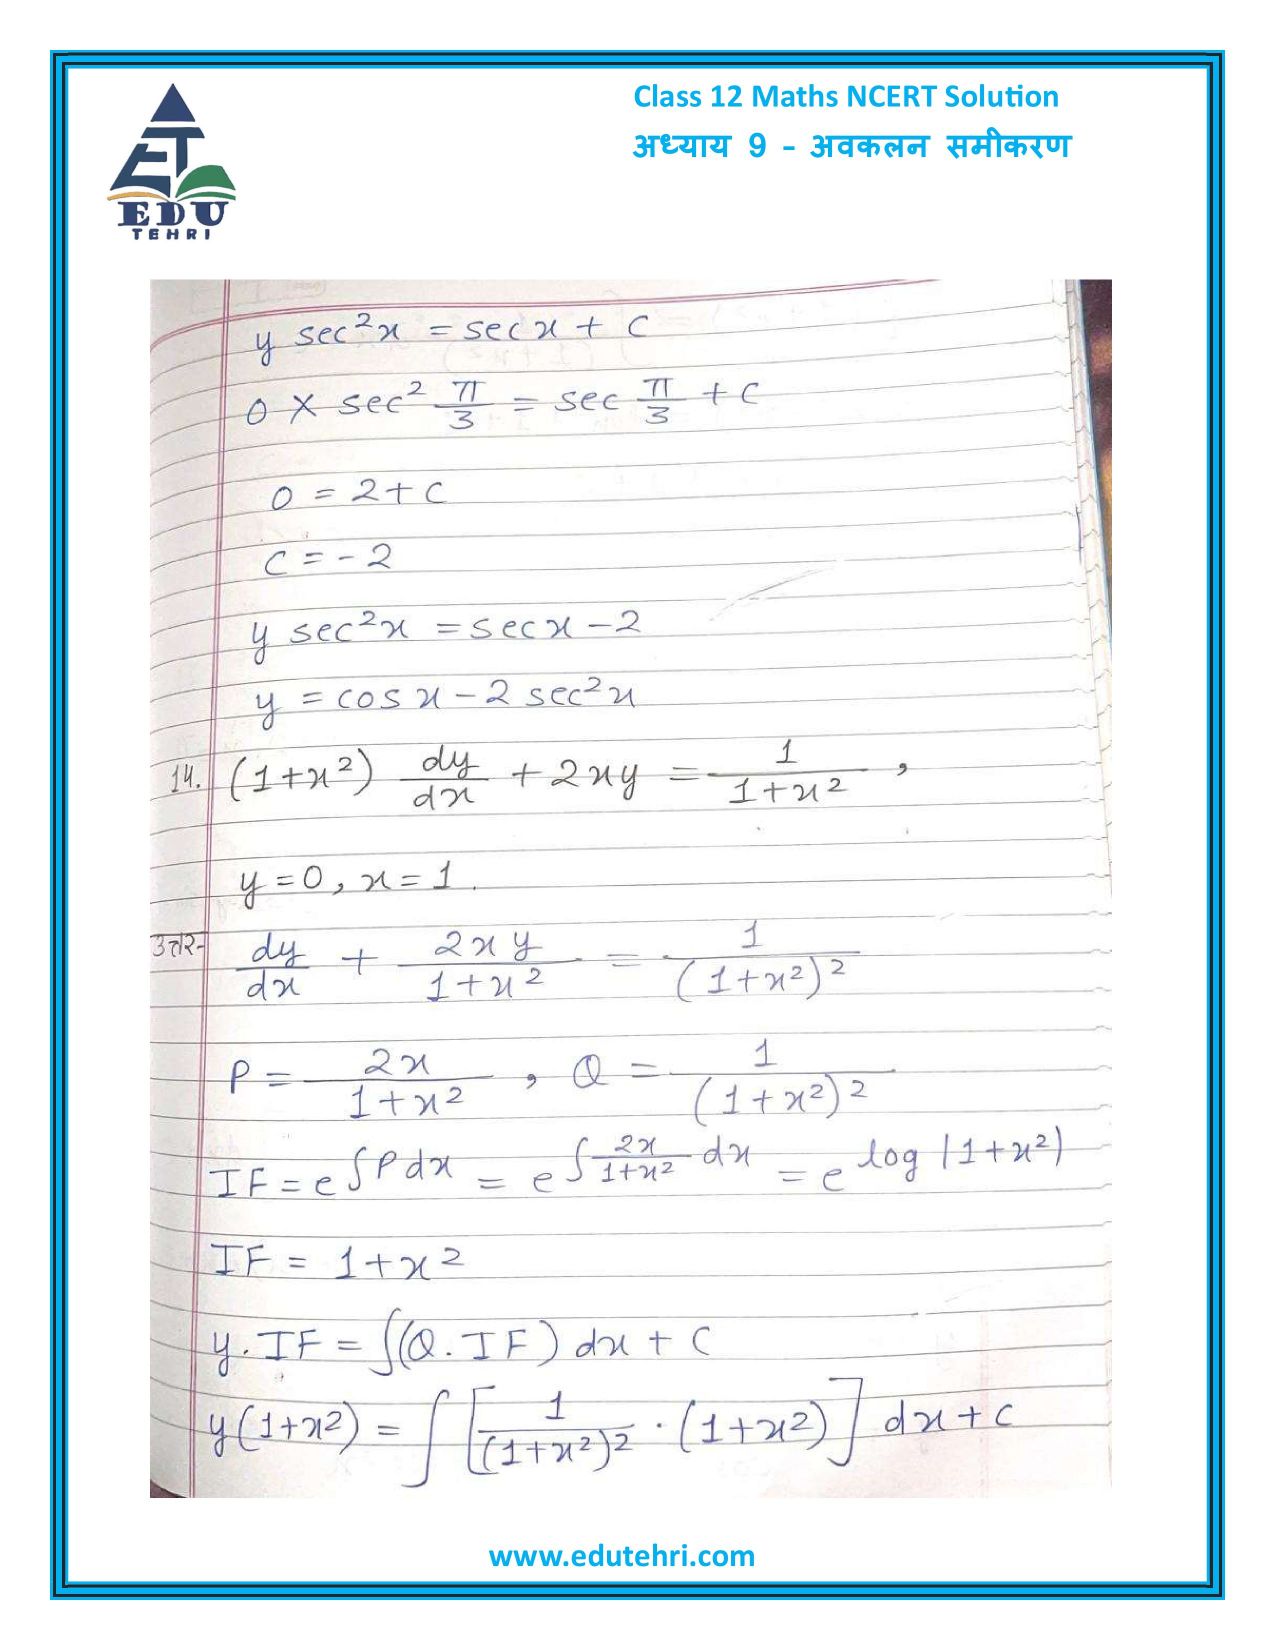 Class 12 Maths NCERT Solution
अध्याय 9 - अवकलन समीकरण
EDU
TEHRI
y sec²x = sec x + c
0 × sec² π/3 = sec π/3 + c
0 = 2 + c
c = -2
y sec²x = sec x - 2
y = cos x - 2 sec²x
14. (1+x²) dy/dx + 2xy = 1/(1+x²) ,
y = 0, x = 1.
उत्तर- dy/dx + 2xy/(1+x²) = 1/(1+x²)²
P = 2x/(1+x²) , Q = 1/(1+x²)²
IF = e^∫P dx = e^∫2x/(1+x²) dx = e^log|1+x²)
IF = 1+x²
y. IF = ∫(Q. IF) dx + C
y(1+x²) = ∫[1/(1+x²)² · (1+x²)] dx + c
www.edutehri.com